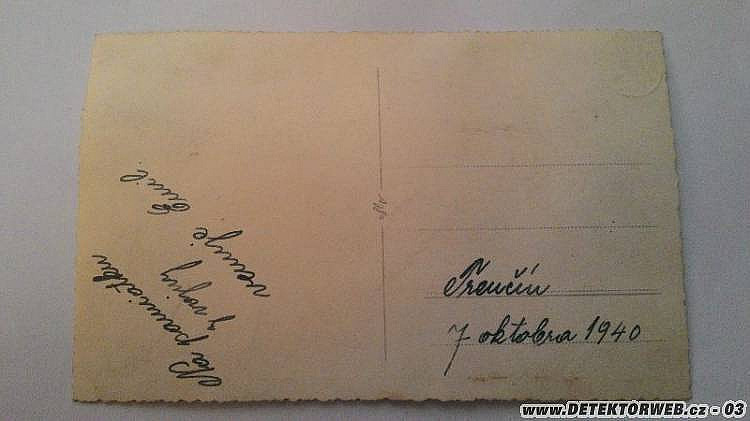 Na pamiatku
z vojny
venuje Emil.
Trenčín
7 oktobra 1940
www.DETEKTORWEB.cz - 03